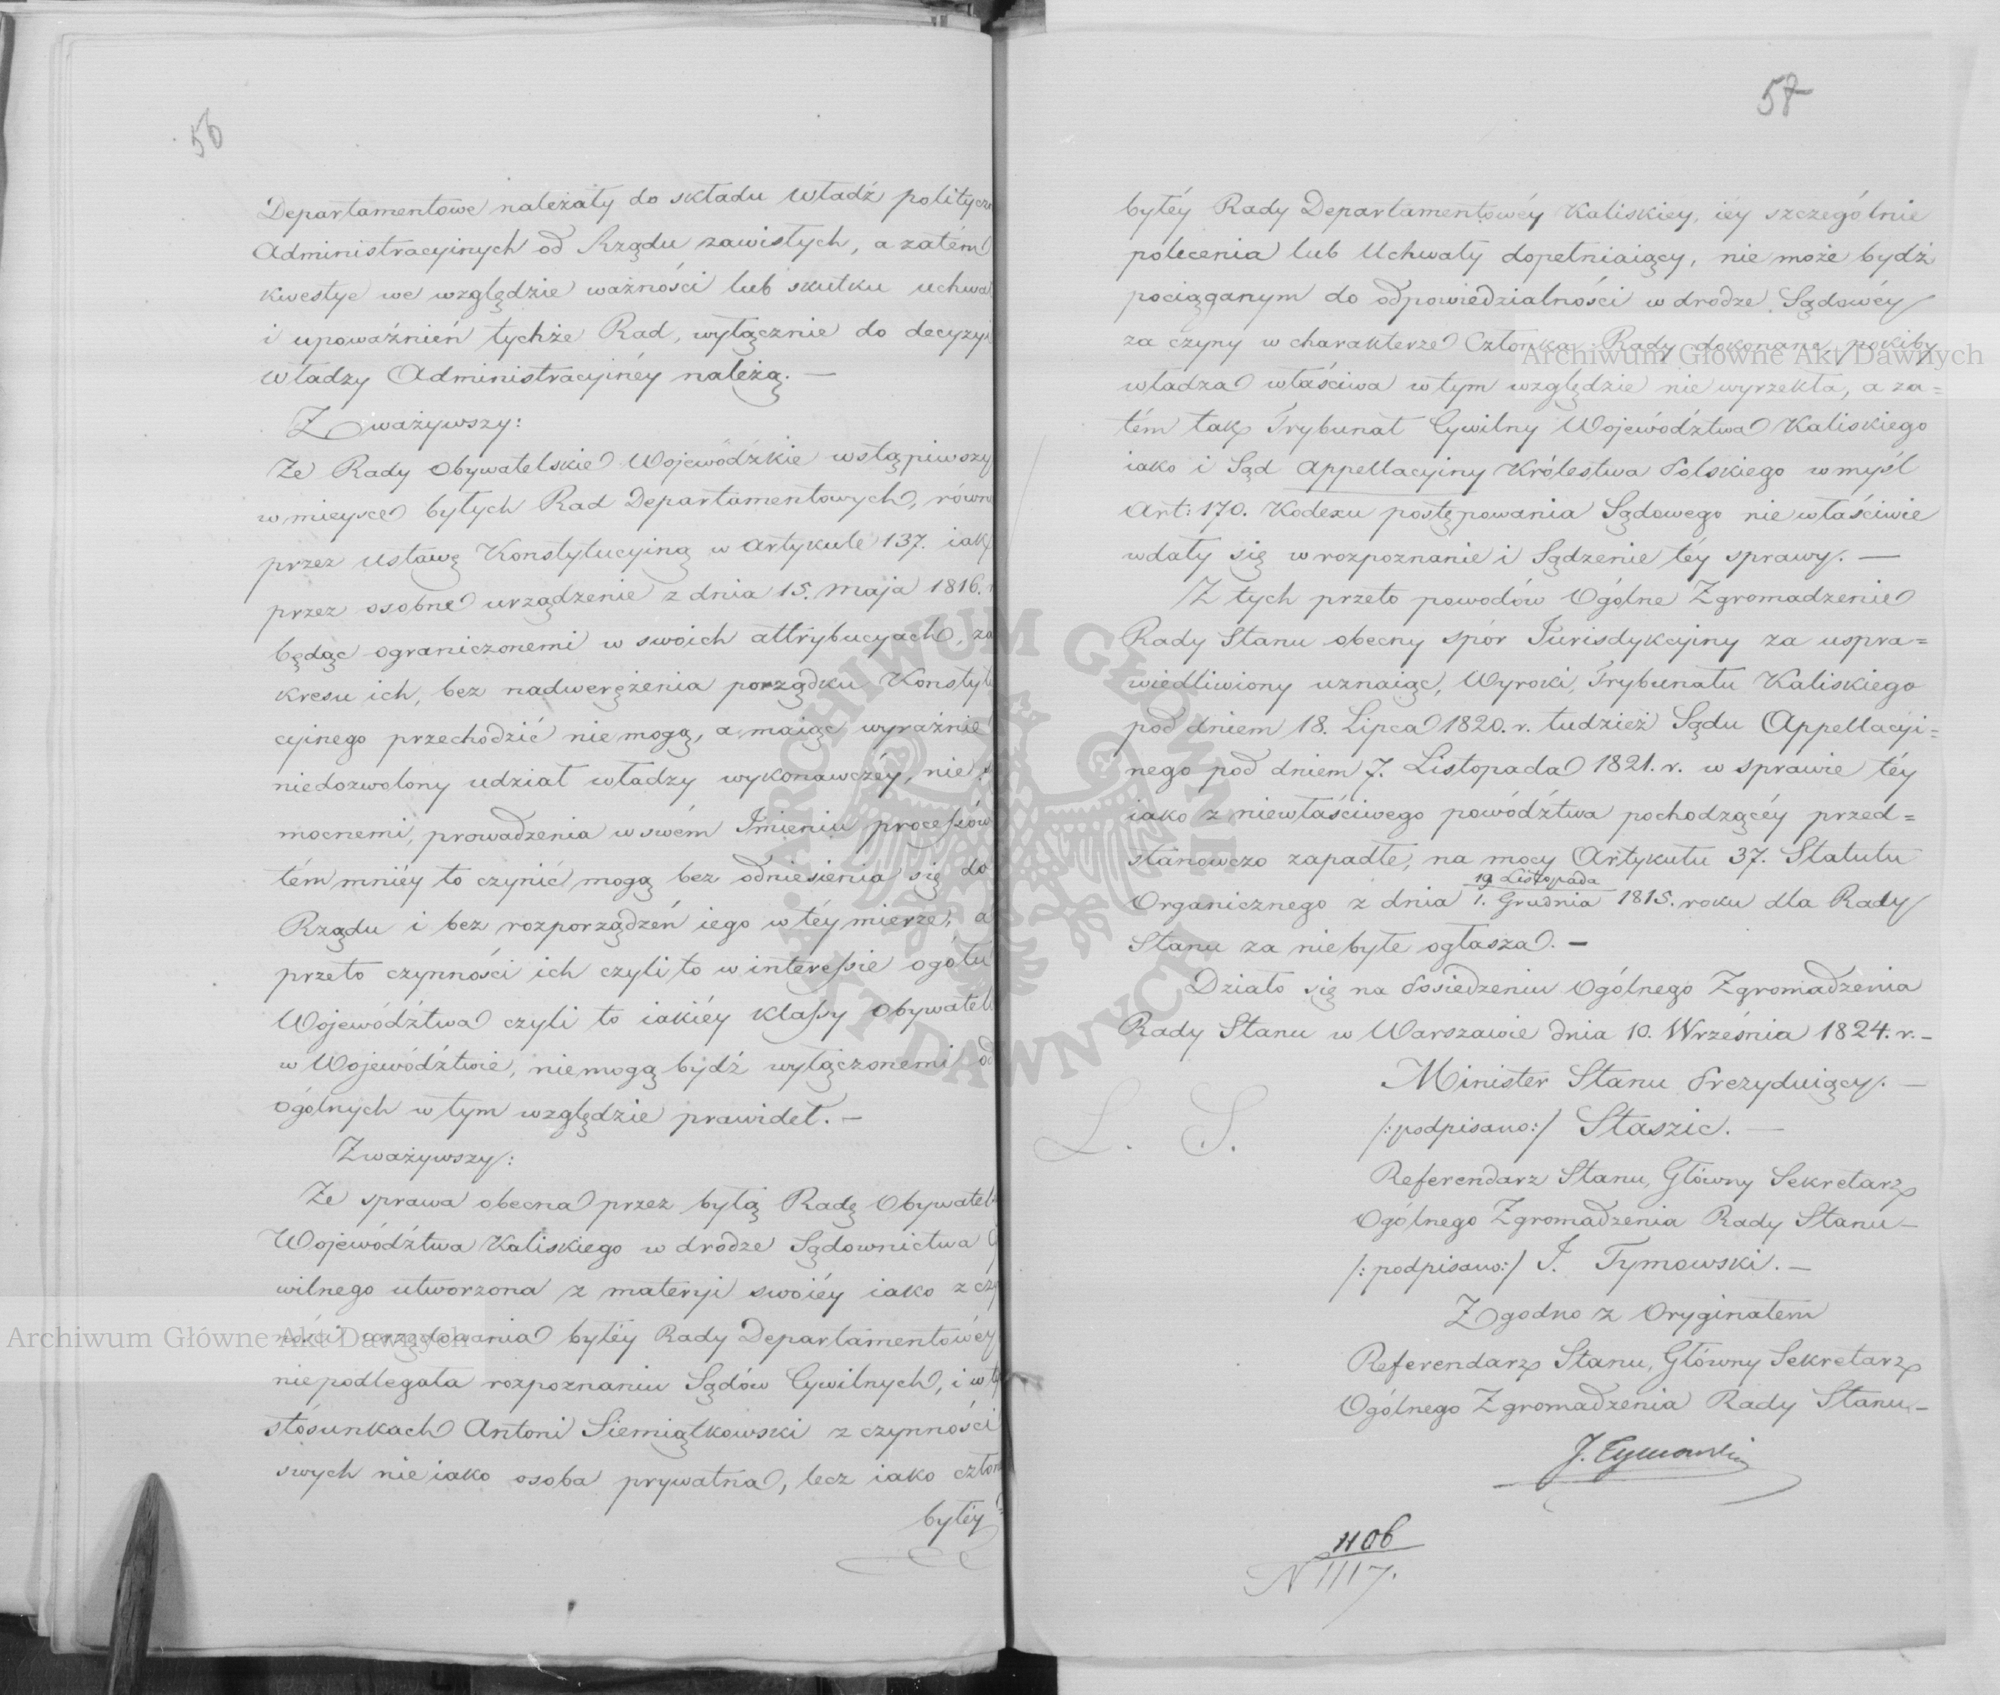 56
Departamentowe należały do składu Władz polityczn
Administracyinych od Rządu zawisłych, a zatém
kwestye we względzie ważności lub skutku uchwa
i upoważnień tychże Rad, wyłącznie do decyzyi
Władzy Administracyinéy należą. —
Zważywszy:
Że Rady Obywatelskie Wojewódzkie wstąpiwszy
w mieysce byłych Rad Departamentowych, równ
przez ustawę Konstytucyiną w artykule 137. iak
przez osobne urządzenie z dnia 15. Maja 1816.
będąc ograniczonemi w swoich attrybucyach, za
kresu ich, bez nadwerężenia porządku Konstytu
cyinego przechodzić nie mogą, a maiąc wyraźnie
niedozwolony udział władzy wykonawczéy, nie
mocnemi, prowadzenia w swém Imieniu processów
tém mniéy to czynić mogą bez odniesienia się do
Rządu i bez rozporządzeń iego w téy mierze, a
przeto czynności ich czyli to w interessie ogółu
Województwa czyli to iakiéy klassy Obywatel
w Województwie, nie mogą bydź wyłączonemi od
ogólnych w tym względzie prawideł. —
Zważywszy:
Że sprawa obecna przez byłą Radę Obywatel
Województwa Kaliskiego w drodze Sądownictwa C
wilnego utworzona z materyi swoiéy iako z czy
ności urzędowania byłéy Rady Departamentowéy
nie podlegała rozpoznaniu Sądów Cywilnych, i w ty
stósunkach Antoni Siemiątkowski z czynności
swych nie iako osoba prywatna, lecz iako człon
byłéy
57
byłéy Rady Departamentowéy Kaliskiey, iéy szczególnie
polecenia lub Uchwały dopełniaiący, nie może bydź
pociąganym do odpowiedzialności w drodze Sądowéy
za czyny w charakterze Członka Rady dokonane, pokiby
władza właściwa w tym względzie nie wyrzekła, a za=
tém tak Trybunał Cywilny Województwa Kaliskiego
iako i Sąd Appellacyiny Królestwa Polskiego w myśl
Art: 170. Kodexu postępowania Sądowego nie właściwie
wdały się w rozpoznanie i Sądzenie téy sprawy. —
Z tych przeto powodów Ogólne Zgromadzenie
Rady Stanu obecny spór Jurisdykcyjny za uspra=
wiedliwiony uznaiąc, Wyroki, Trybunału Kaliskiego
pod dniem 18. Lipca 1820. r. tudzież Sądu Appellacyi=
nego pod dniem 7. Listopada 1821. r. w sprawie téy
iako z niewłaściwego powództwa pochodzącéy przed=
stanowczo zapadłe, na mocy Artykułu 37. Statutu
19 Listopada
Organicznego z dnia 1. Grudnia 1815. roku dla Rady
Stanu za niebyłe ogłasza. —
Działo się na Posiedzeniu Ogólnego Zgromadzenia
Rady Stanu w Warszawie dnia 10. Września 1824. r. —
Minister Stanu Prezyduiący. —
L. S.
/:podpisano:/ Staszic. —
Referendarz Stanu, Główny Sekretarz
Ogólnego Zgromadzenia Rady Stanu —
/:podpisano:/ J. Tymowski. —
Zgodno z Oryginałem
Referendarz Stanu, Główny Sekretarz
Ogólnego Zgromadzenia Rady Stanu —
J. Tymowski
1106
N 1117.
Archiwum Główne Akt Dawnych
Archiwum Główne Akt Dawnych
ARCHIWUM GŁÓWNE AKT DAWNYCH